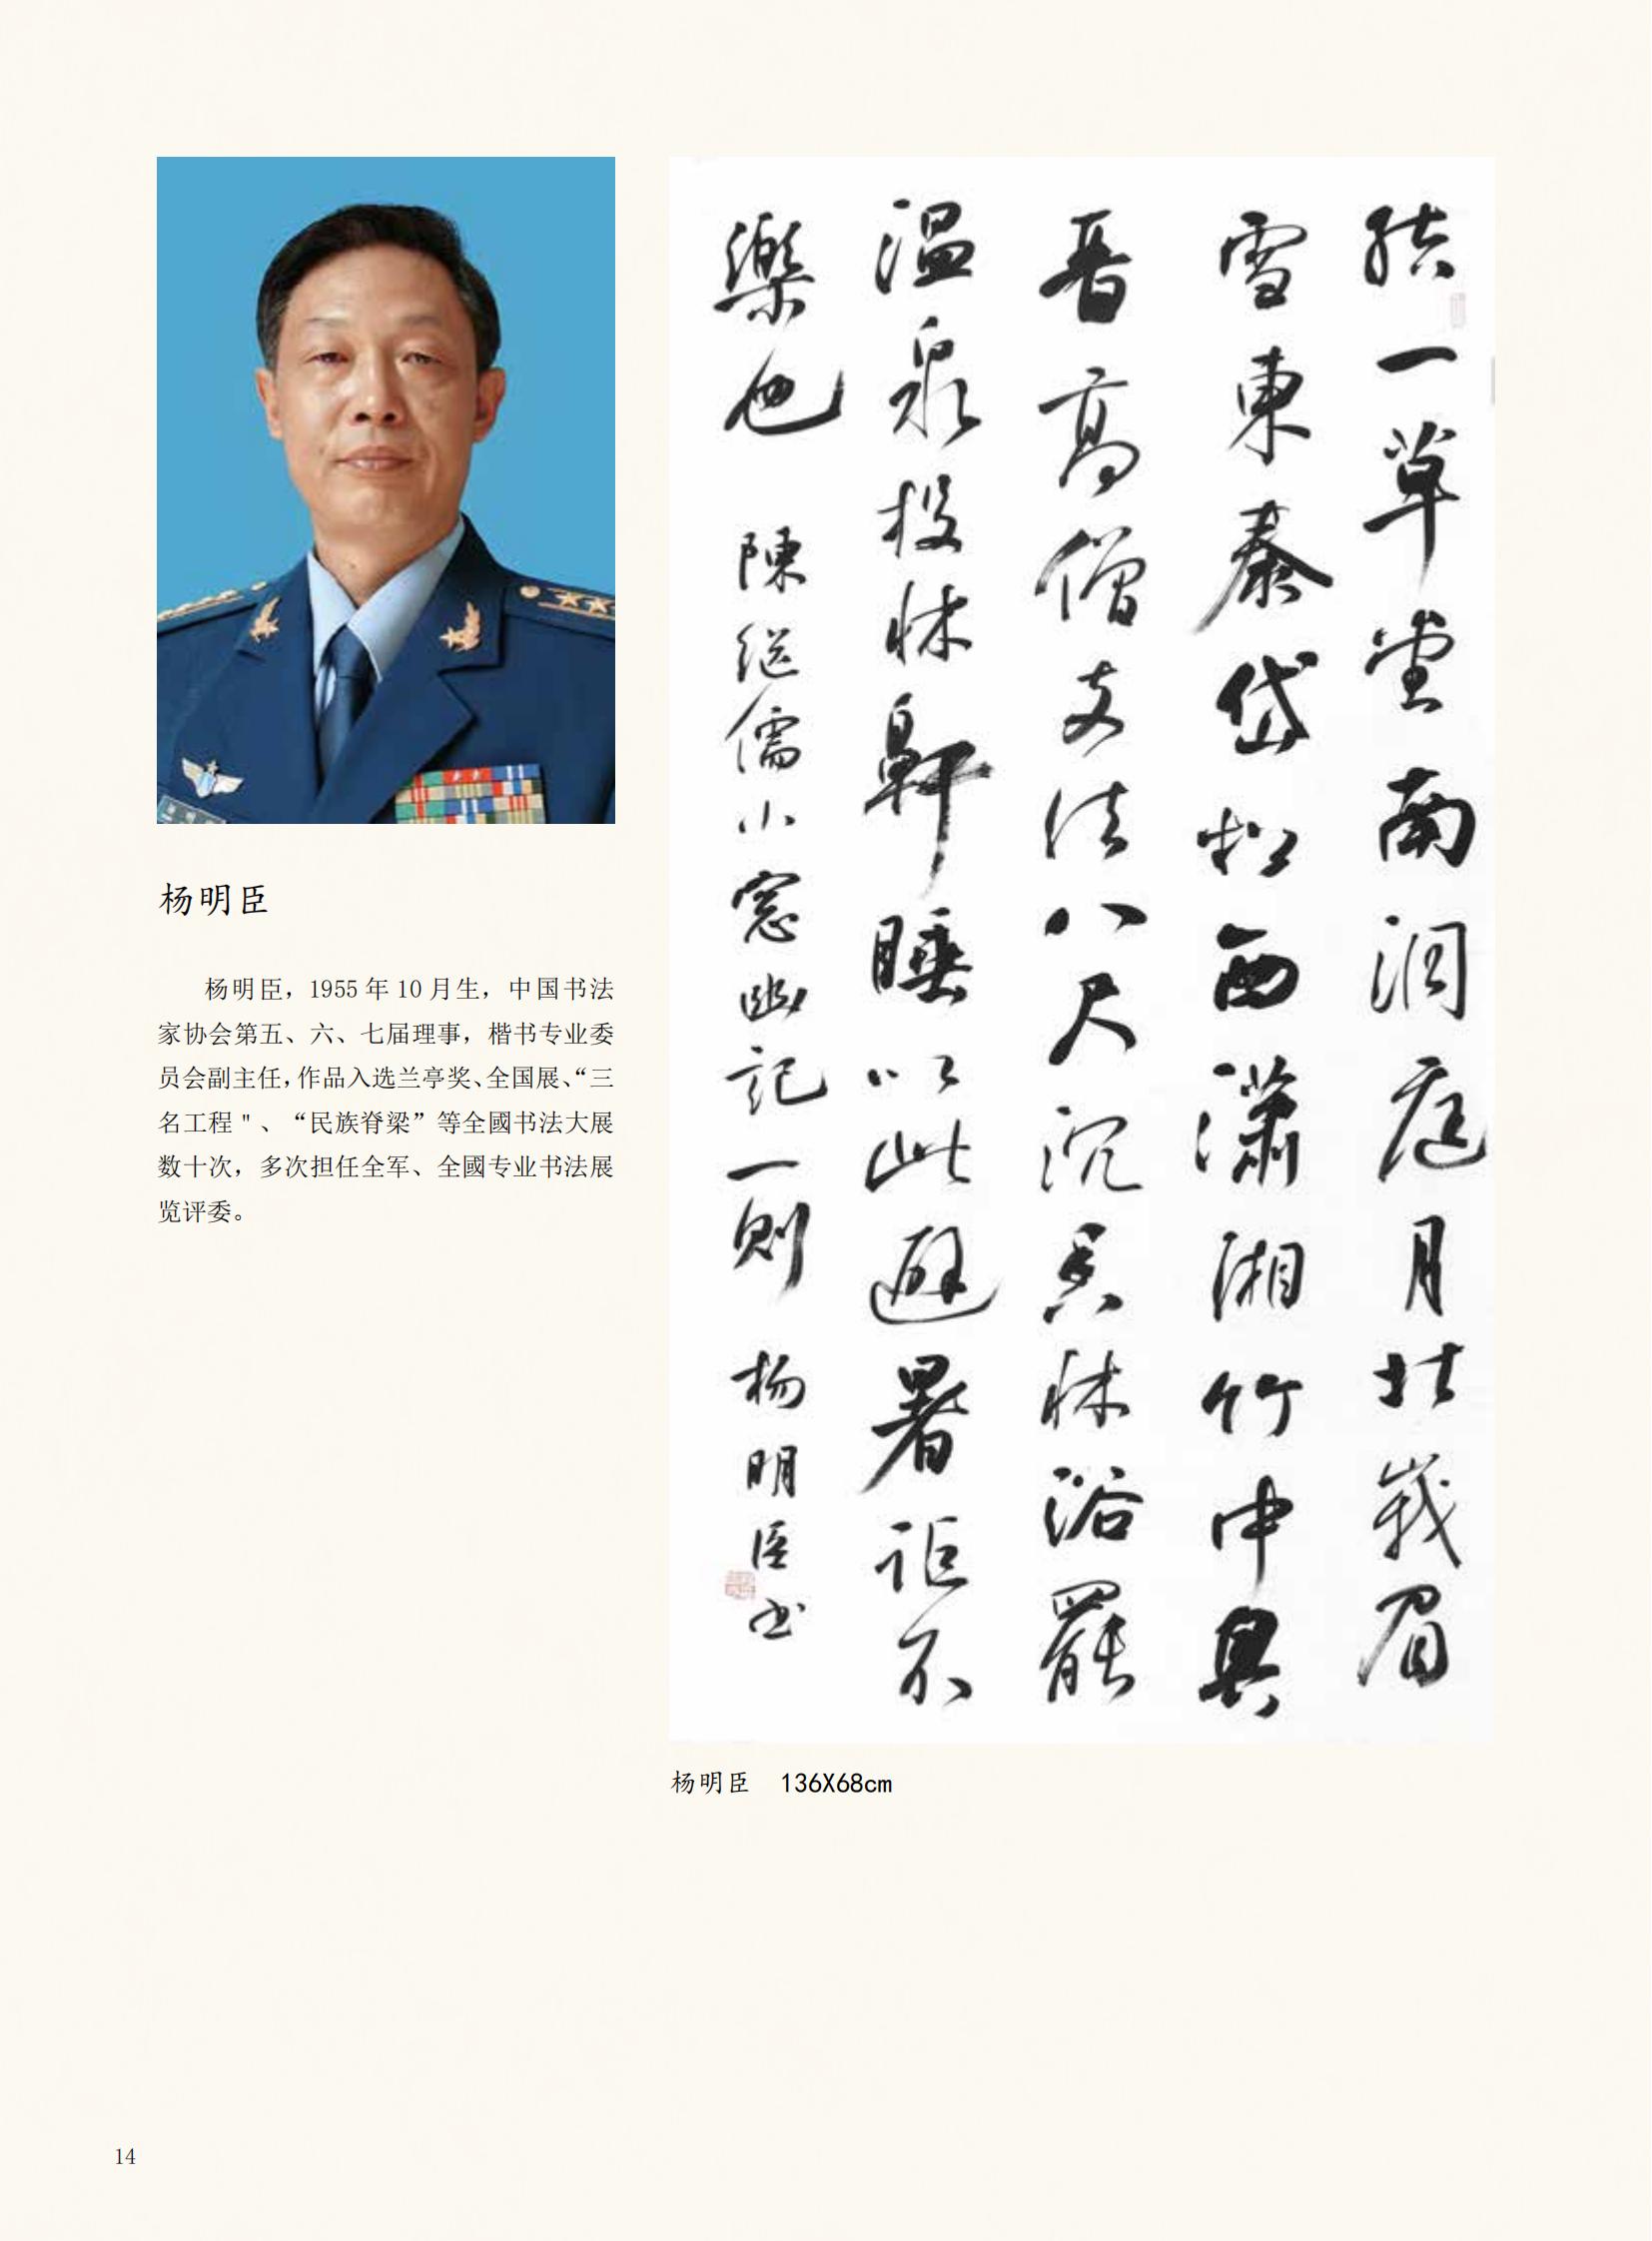 杨明臣
杨明臣，1955 年 10 月生，中国书法
家协会第五、六、七届理事，楷书专业委
员会副主任，作品入选兰亭奖、全国展、“三
名工程 "、“民族脊梁”等全國书法大展
数十次，多次担任全军、全國专业书法展
览评委。
結一草堂南洞庭月北峩眉
雪東泰岱松西瀟湘竹中具
晋高僧支法八尺沉香牀浴罷
温泉投牀鼾睡以此避暑詎不
樂也 陳继儒小窓幽記一則 杨明臣书
杨明臣 136X68cm
14